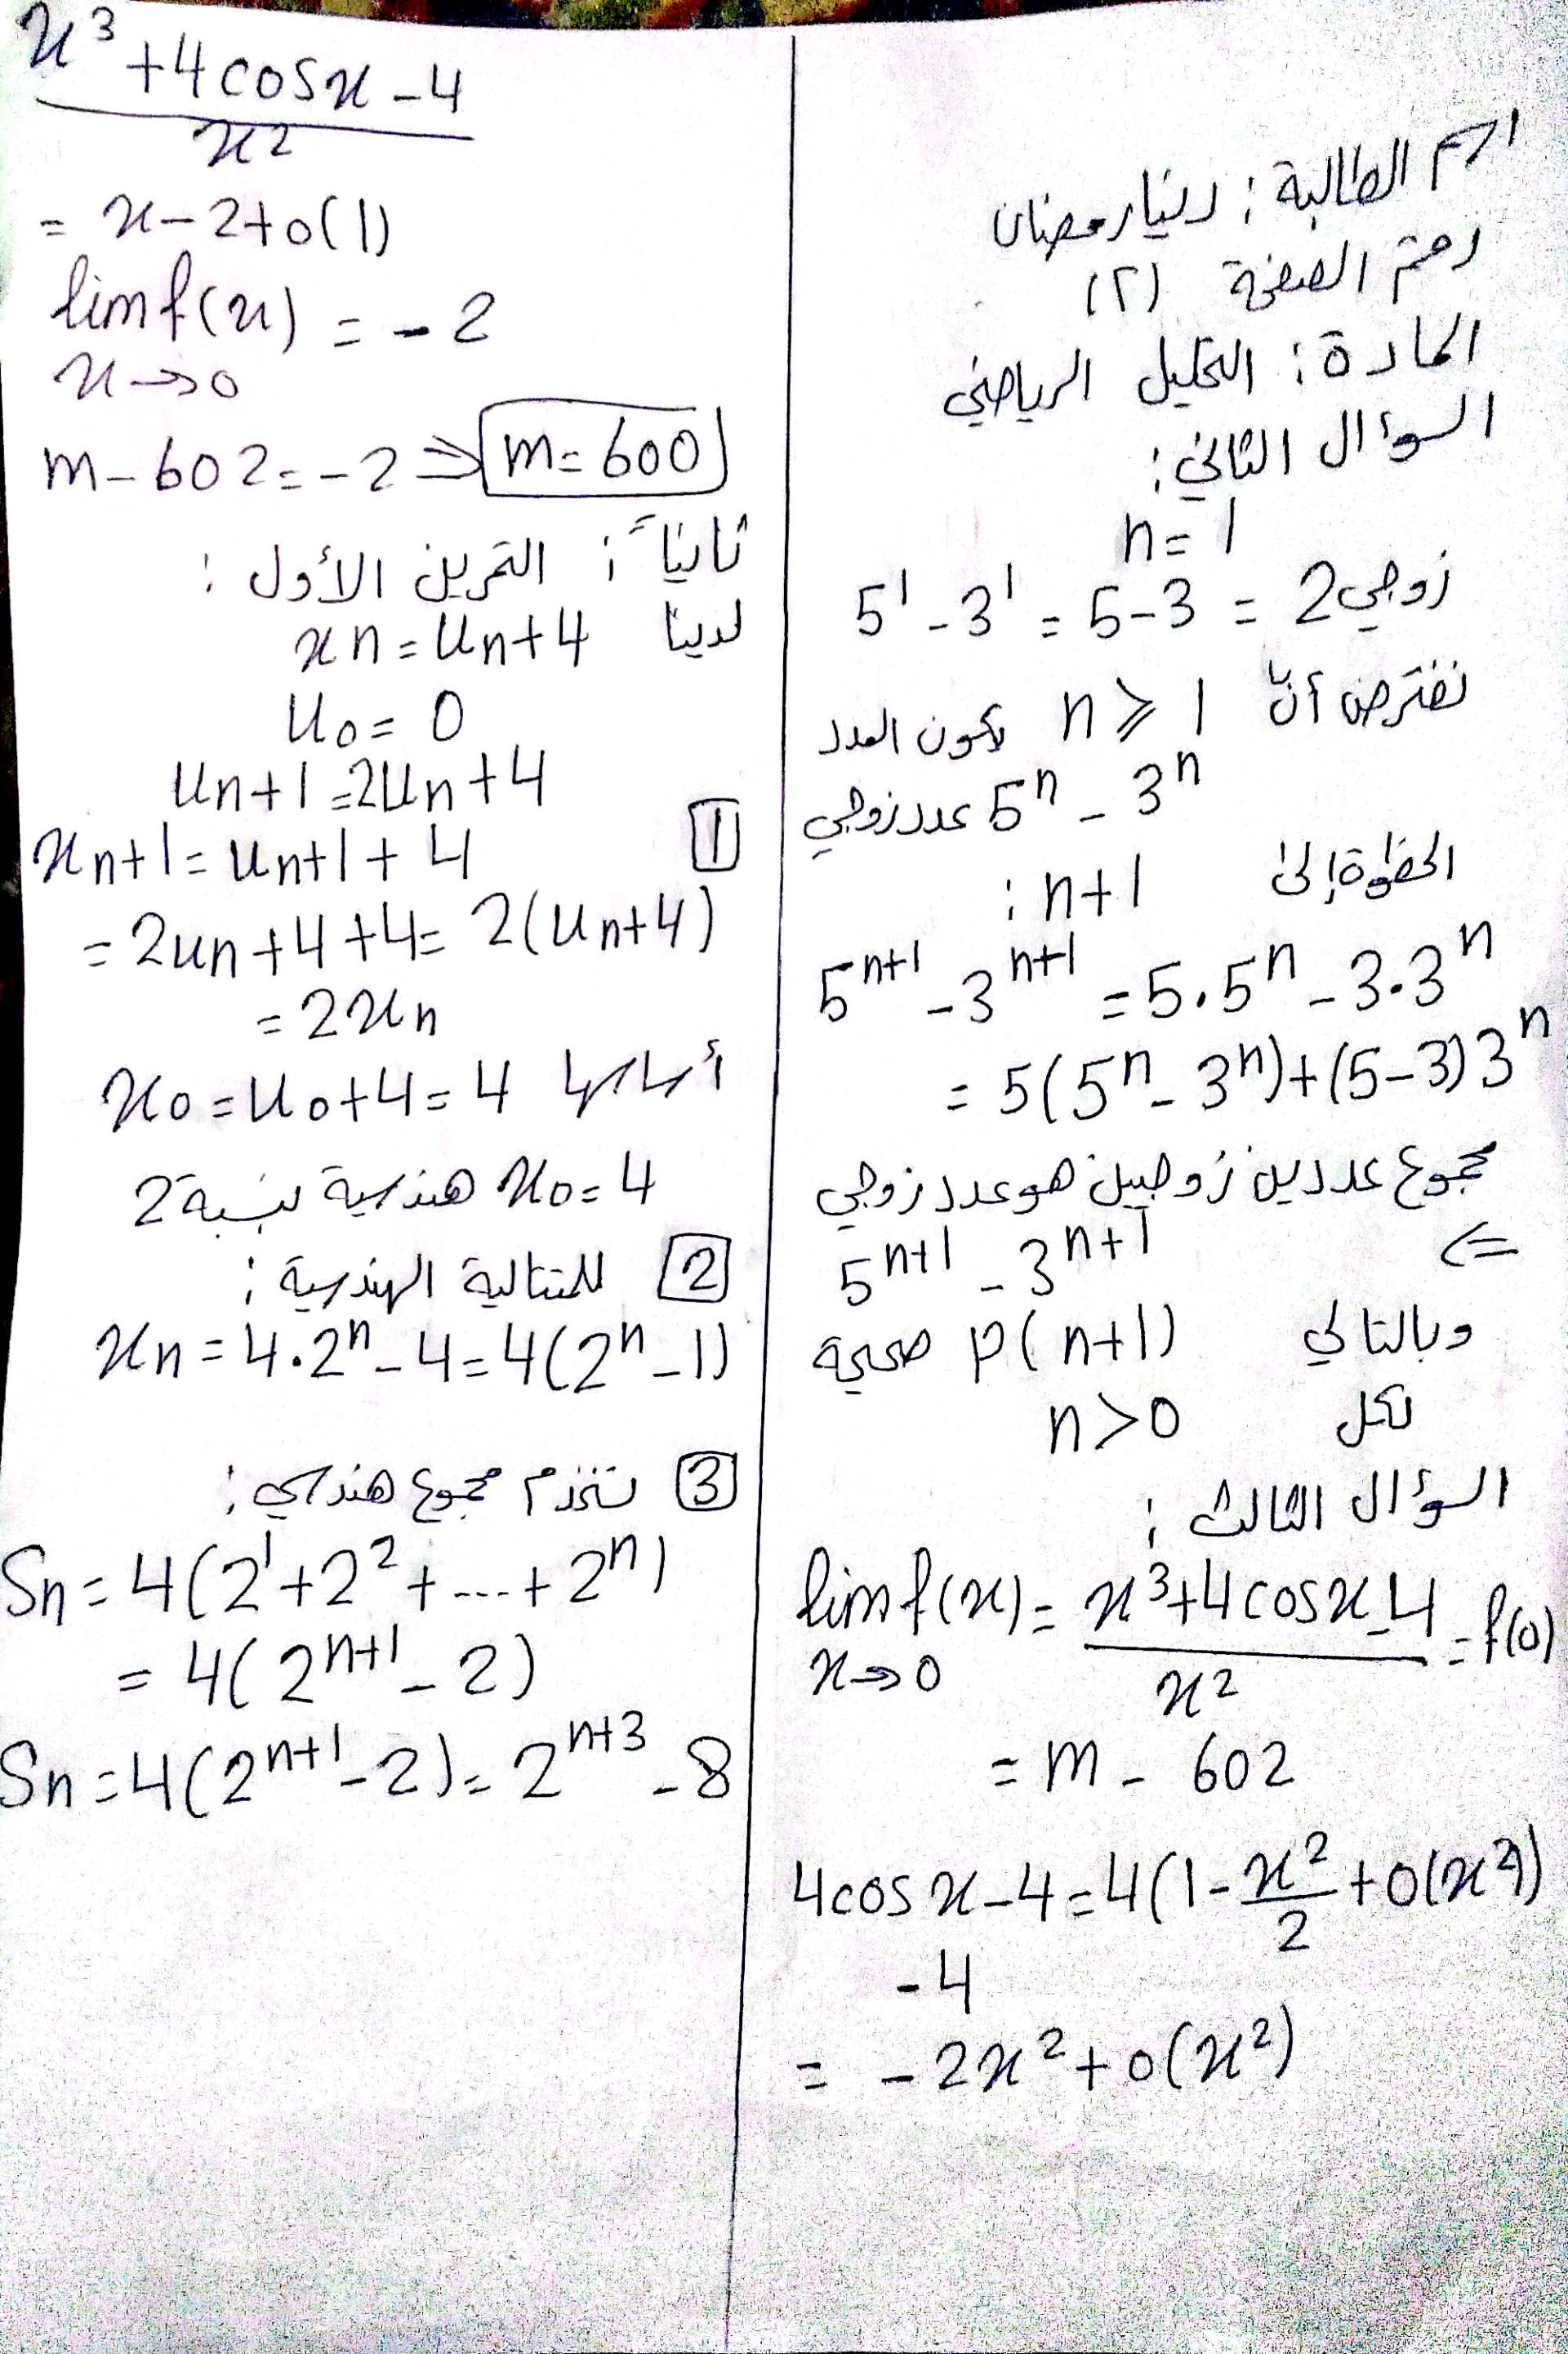 اسم الطالبة : دنيا رمضان
رقم الصفحة (٢)
المادة : التحليل الرياضي
السؤال الثاني :
n = 1
5¹ - 3¹ = 5 - 3 = 2 زوجي
نفترض أنّ n ⩾ 1 يكون العدد
5ⁿ - 3ⁿ عدد زوجي
الخطوة إلى n+1 :
5ⁿ⁺¹ - 3ⁿ⁺¹ = 5.5ⁿ - 3.3ⁿ
= 5(5ⁿ - 3ⁿ) + (5-3)3ⁿ
مجموع عددين زوجيين هو عدد زوجي
<= 5ⁿ⁺¹ - 3ⁿ⁺¹
وبالتالي p(n+1) صحيحة
لكل n > 0
السؤال الثالث :
lim f(x) = x³ + 4cosx - 4 / x² = f(0)
x→0
= m - 602
4cosx - 4 = 4(1 - x²/2 + o(x²))
-4
= -2x² + o(x²)
x³ + 4cosx - 4 / x²
= x - 2 + o(1)
lim f(x) = -2
x→0
m - 602 = -2 ⇒ m = 600
ثانياً : التمرين الأول :
لدينا xn = Un + 4
U0 = 0
Un+1 = 2Un + 4
1 xn+1 = Un+1 + 4
= 2un + 4 + 4 = 2(Un + 4)
= 2xn
x0 = U0 + 4 = 4
x0 = 4 هندسية بنسبة 2
2 للمتتالية الهندسية :
xn = 4.2ⁿ - 4 = 4(2ⁿ - 1)
3 نستخدم مجموع هندسي :
Sn = 4(2¹ + 2² + ... + 2ⁿ)
= 4(2ⁿ⁺¹ - 2)
Sn = 4(2ⁿ⁺¹ - 2) = 2ⁿ⁺³ - 8